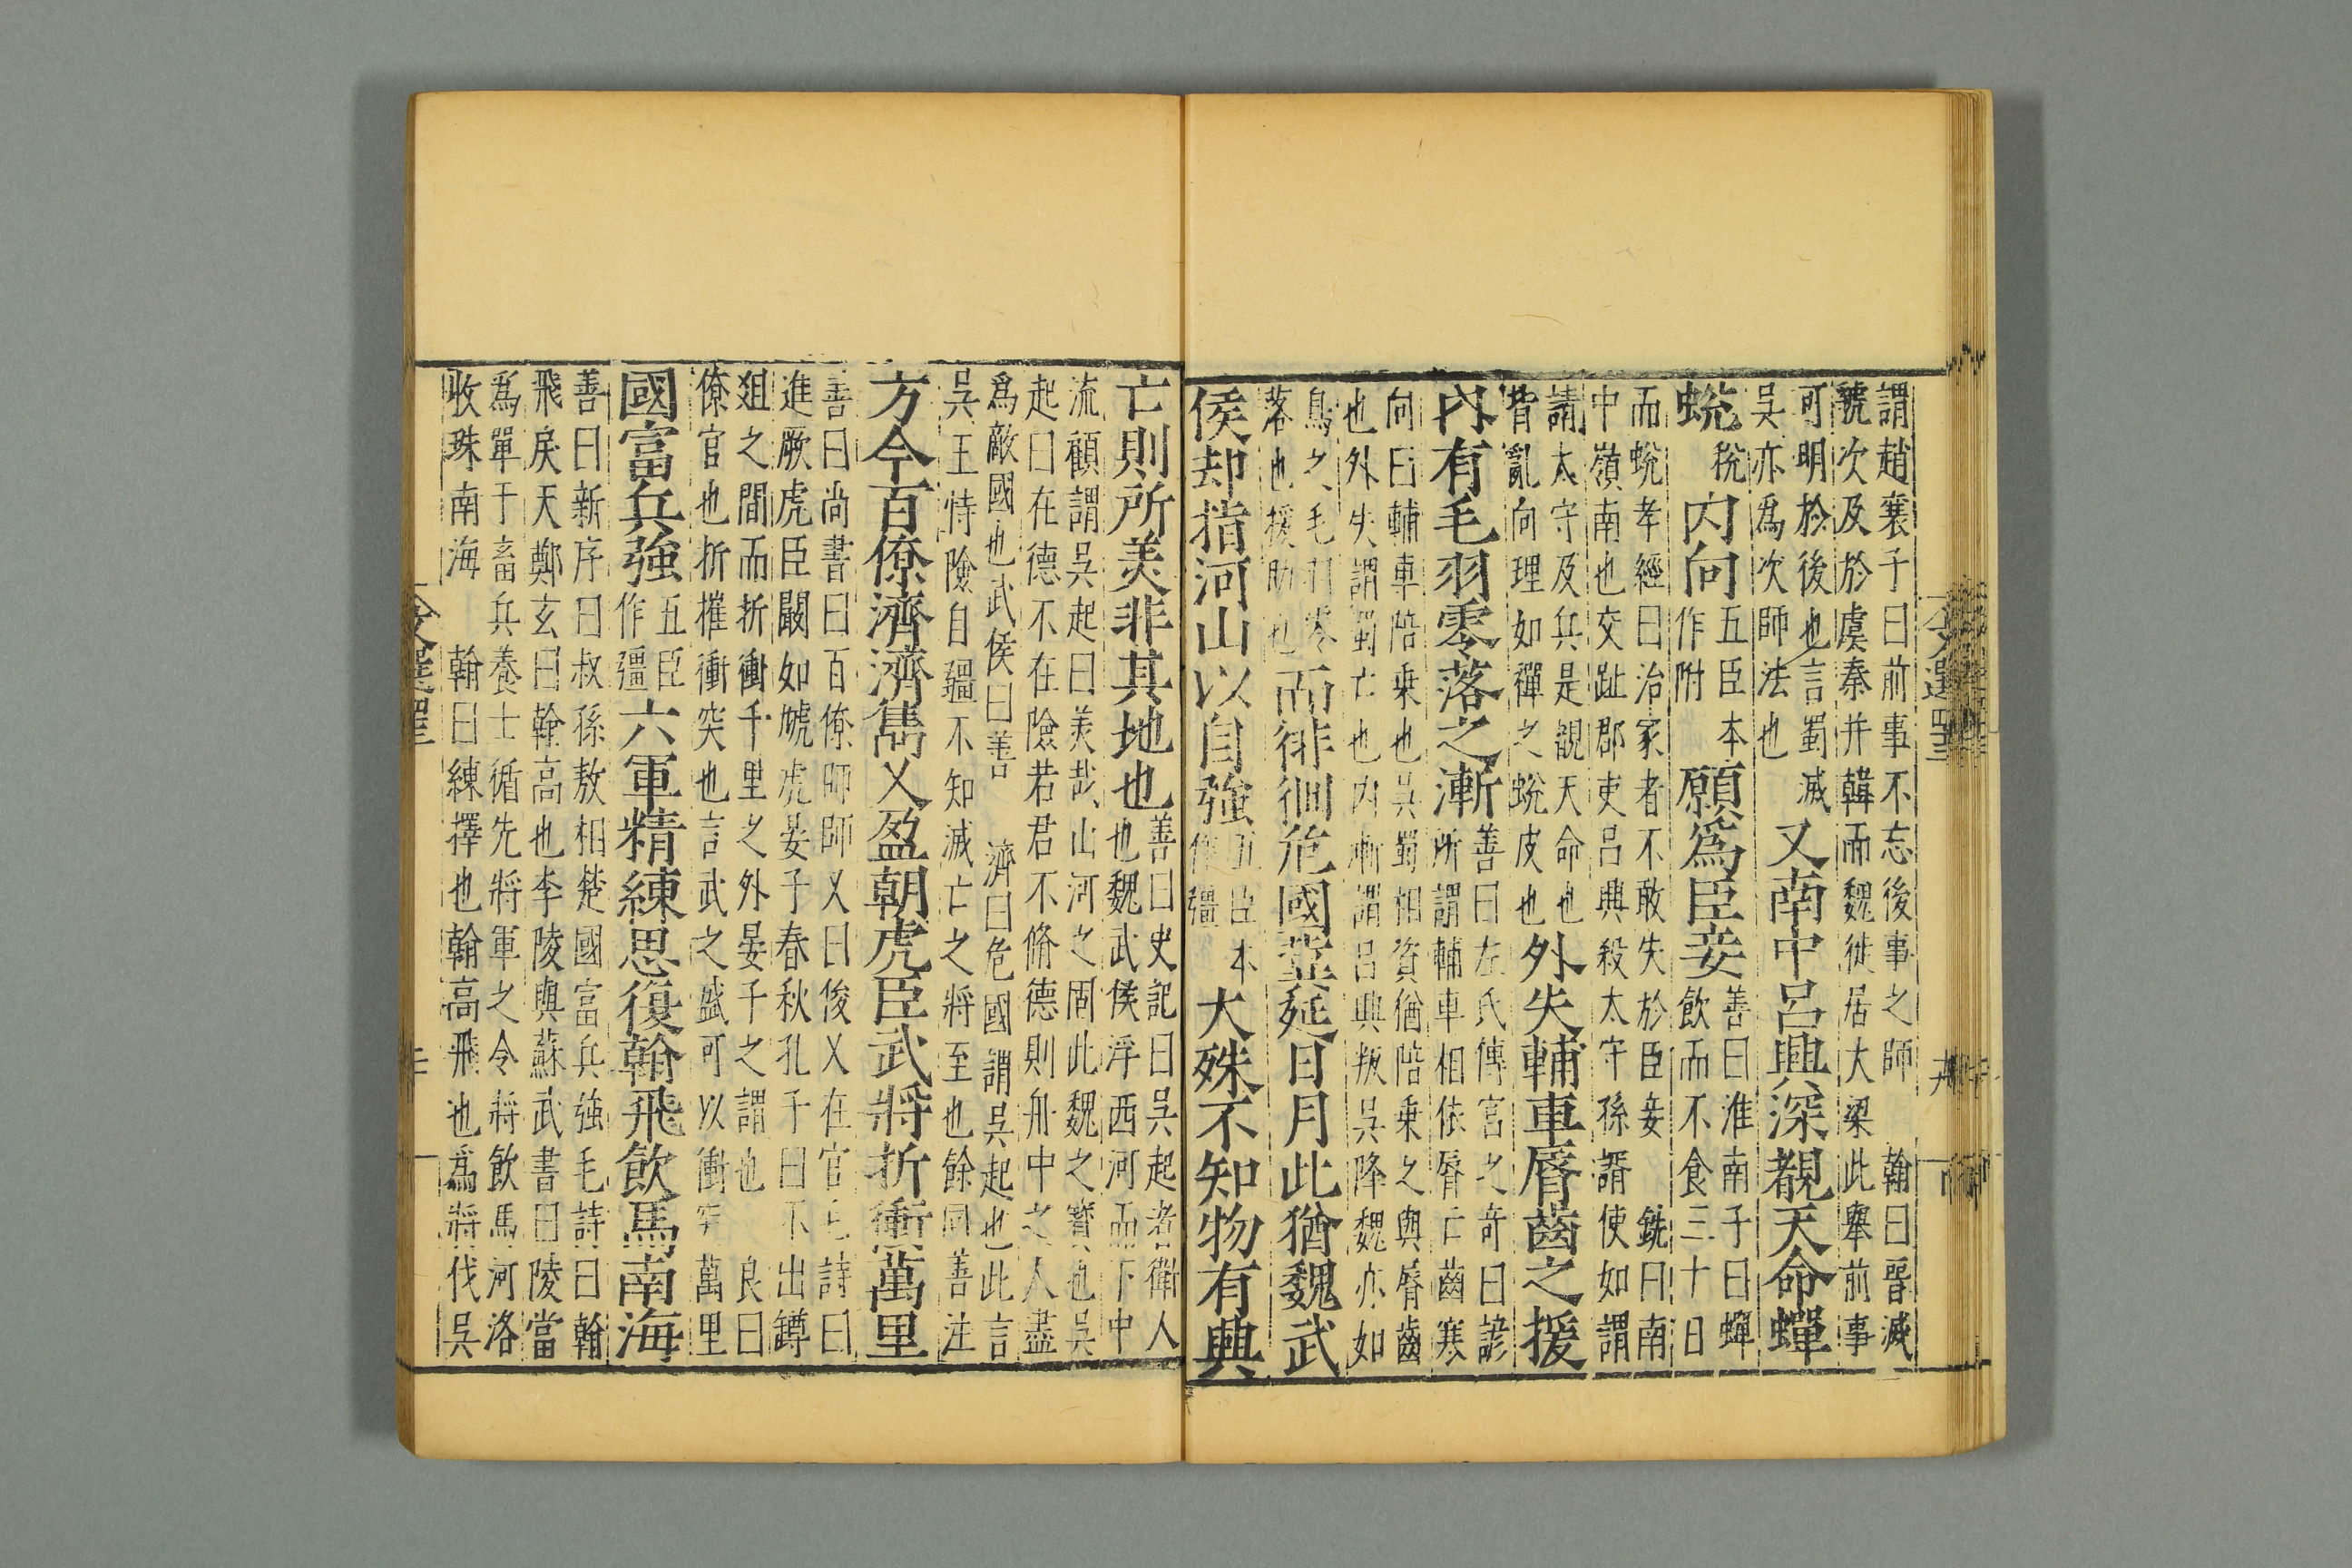 謂趙襄子曰前事不忘後事之師 翰曰晉滅
虢次及於虞秦并韓而魏徙居大梁此舉前事
可明於後也言蜀滅
吳亦爲次師法也
又南中呂興深覩天命蟬
蛻
稅
内向
五臣本
作附
願爲臣妾
善曰淮南子曰蟬
飲而不食三十日
而蛻孝經曰治家者不敢失於臣妾 銑曰南
中嶺南也交趾郡吏呂興殺太守孫諝使如謂
請太守及兵是覩天命也
背亂向理如禪之蛻皮也
外失輔車脣齒之援
内有毛羽零落之漸
善曰左氏傳宮之奇曰諺
所謂輔車相依脣亡齒寒
向曰輔車陪乗也吳蜀相資猶陪乗之與脣齒
也外失謂蜀亡也内漸謂呂興叛吳降魏亦如
鳥之毛羽零
落也援助也
而徘徊危國冀延日月此猶魏武
侯却指河山以自強
五臣本
作疆
大殊不知物有興
亡則所美非其地也
善曰史記曰吳起者衛人
也魏武侯浮西河而下中
流顧謂吳起曰美哉山河之固此魏之寶也吳
起曰在德不在險若君不脩德則舟中之人盡
爲敵國也武侯曰善 濟曰危國謂吳起也此言
吳王恃險自疆不知滅亡之將至也餘同善注
方今百僚濟濟雋乂盈朝虎臣武將折衝萬里
善曰尚書曰百僚師師又曰俊乂在官毛詩曰
進厥虎臣闞如虓虎晏子春秋孔子曰不出罇
俎之間而折衝千里之外晏子之謂也 良曰
僚官也折摧衝突也言武之盛可以衝突萬里
國富兵強
五臣
作疆
六軍精練思復翰飛飲馬南海
善曰新序曰叔孫敖相楚國富兵強毛詩曰翰
飛戾天鄭玄曰翰高也李陵與蘇武書曰陵當
爲單于畜兵養士循先將軍之令將飲馬河洛
收珠南海 翰曰練擇也翰高飛也爲將伐吳